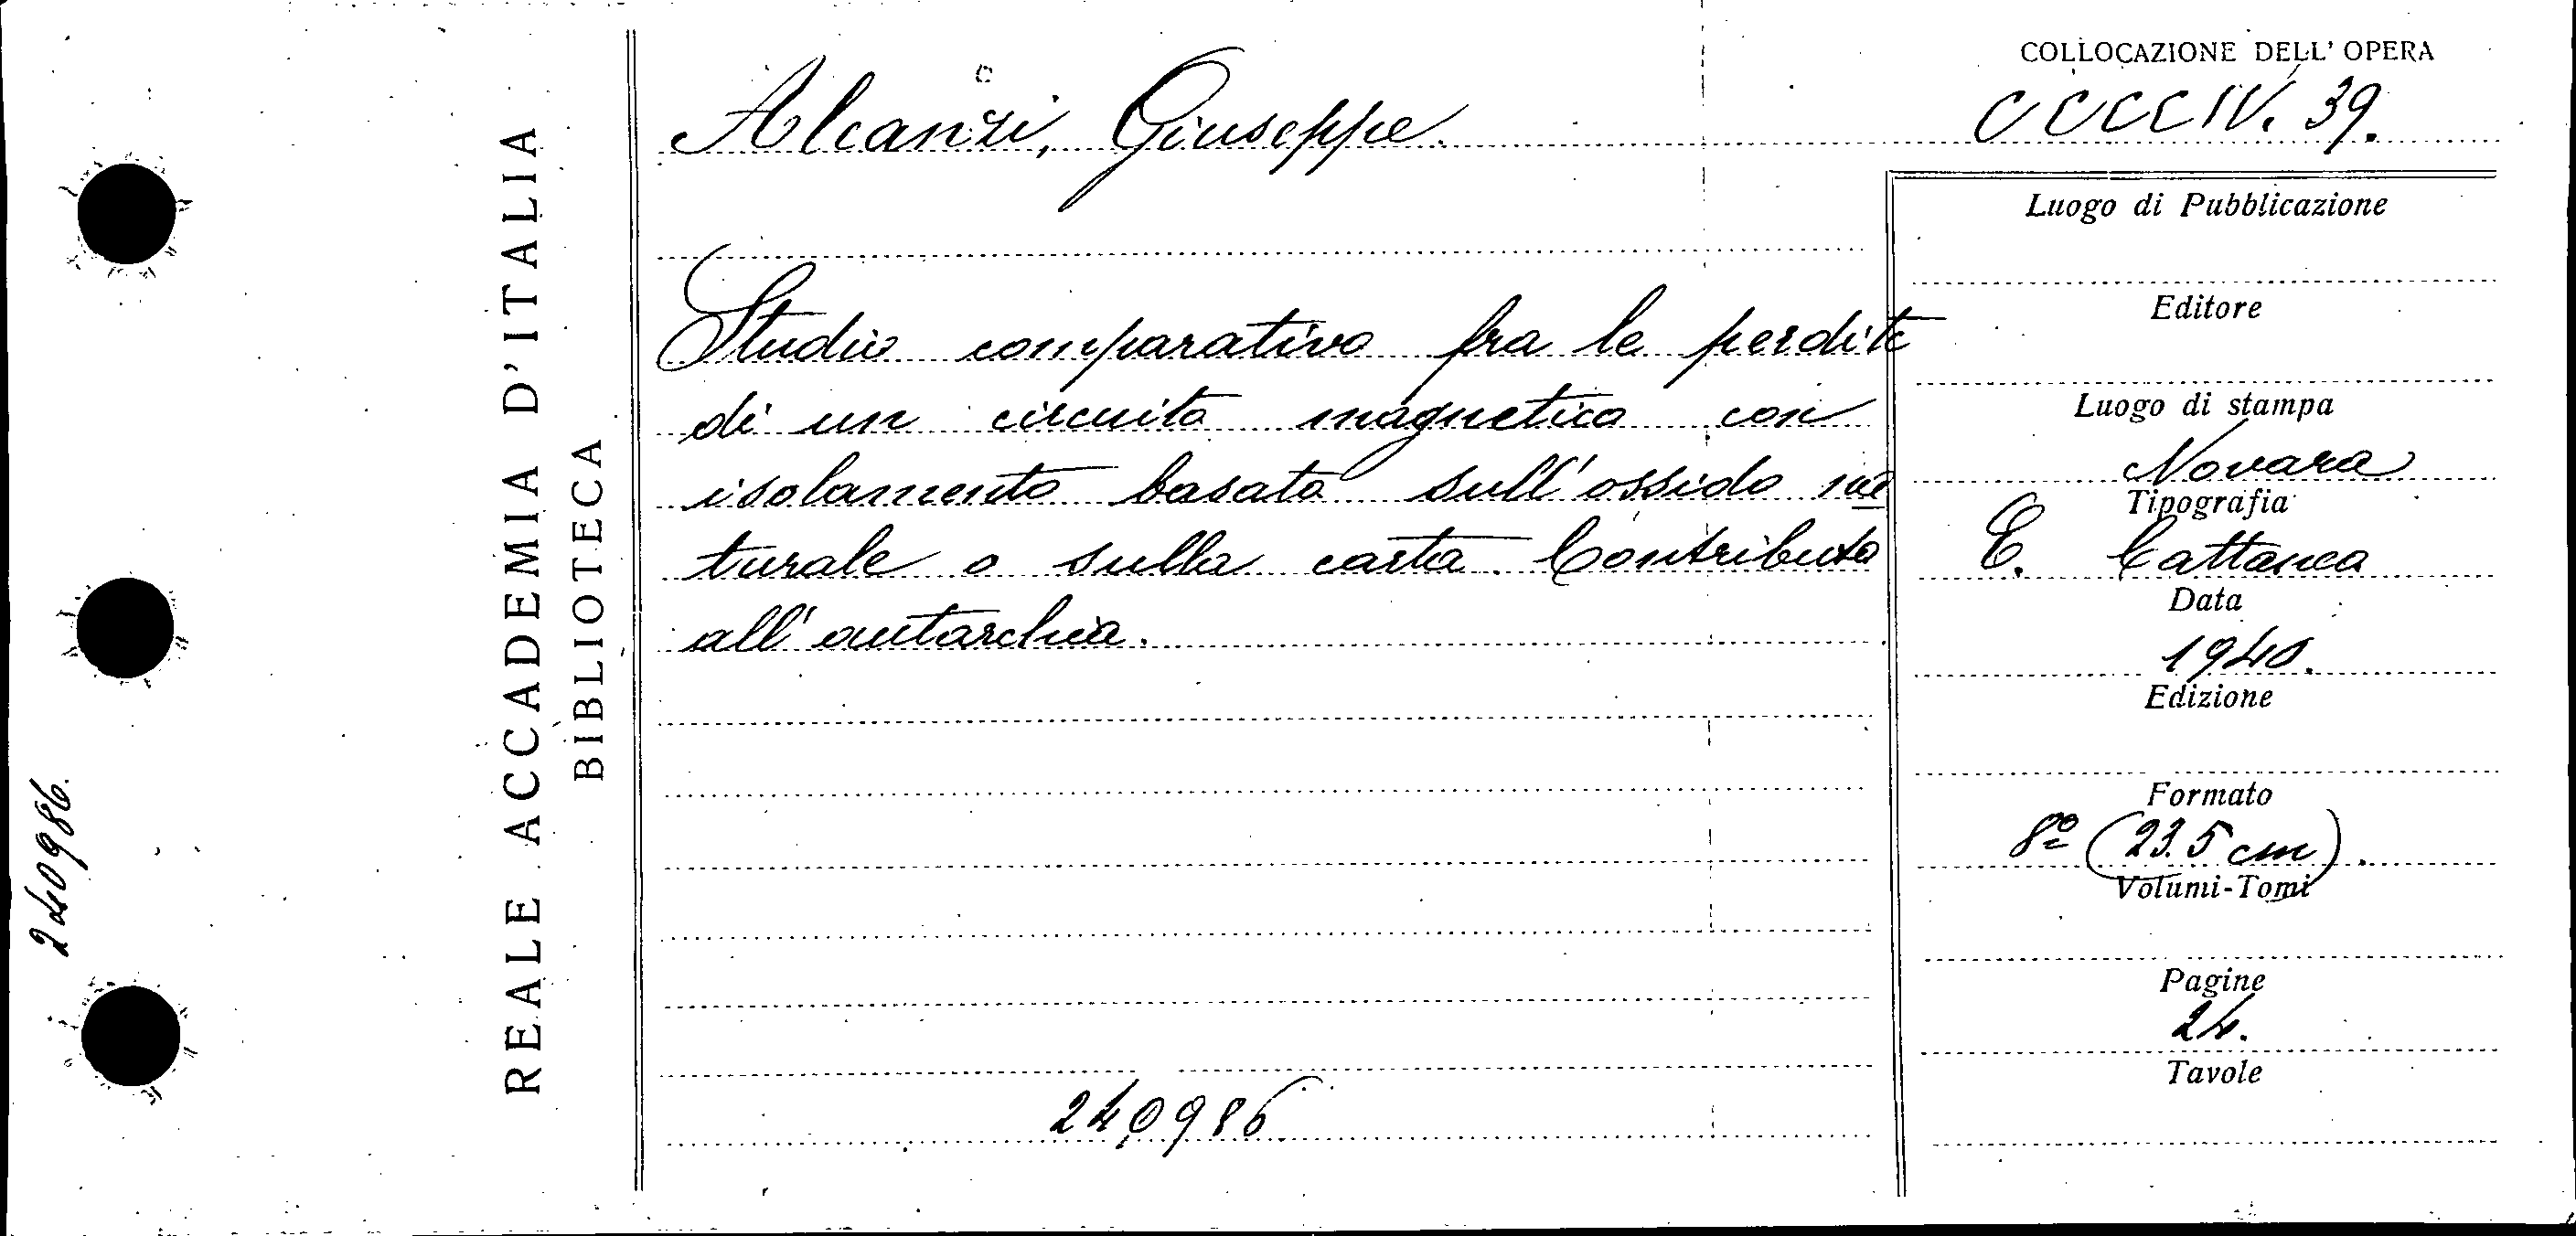 REALE ACCADEMIA D'ITALIA
BIBLIOTECA
240986.
Alcanzi, Giuseppe.
Studio comparativo fra le perdite
di un circuito magnetico con
isolamento basato sull'ossido na
turale o sulla carta. Contributo
all'autarchia.
240986
COLLOCAZIONE DELL'OPERA
CCCCIV. 39.
Luogo di Pubblicazione
Editore
Luogo di stampa
Novara
Tipografia
E. Cattanea
Data
1940.
Edizione
Formato
8º (23.5 cm).
Volumi-Tomi
Pagine
24.
Tavole